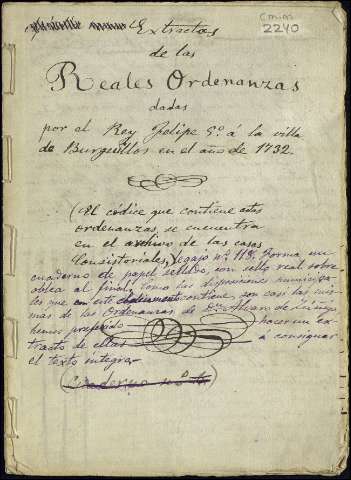 Extractos
Com.es
2240
de las
Reales Ordenanzas
dadas
por el Rey Felipe 5º á la villa
de Burguillos en el año de 1732.
(El códice que contiene estas
ordenanzas, se encuentra
en el archivo de las casas
Consistoriales, legajo nº 118. Forma un
cuaderno de papel sellado, con sello real sobre
oblea al final. Como las disposiciones municipa
les que en este documento contiene, son casi las mis
mas de las Ordenanzas de Dn Alvaro de Zúñiga
hemos preferido hacer un ex
tracto de ellas á consignar
el texto integro.
Cuaderno nº